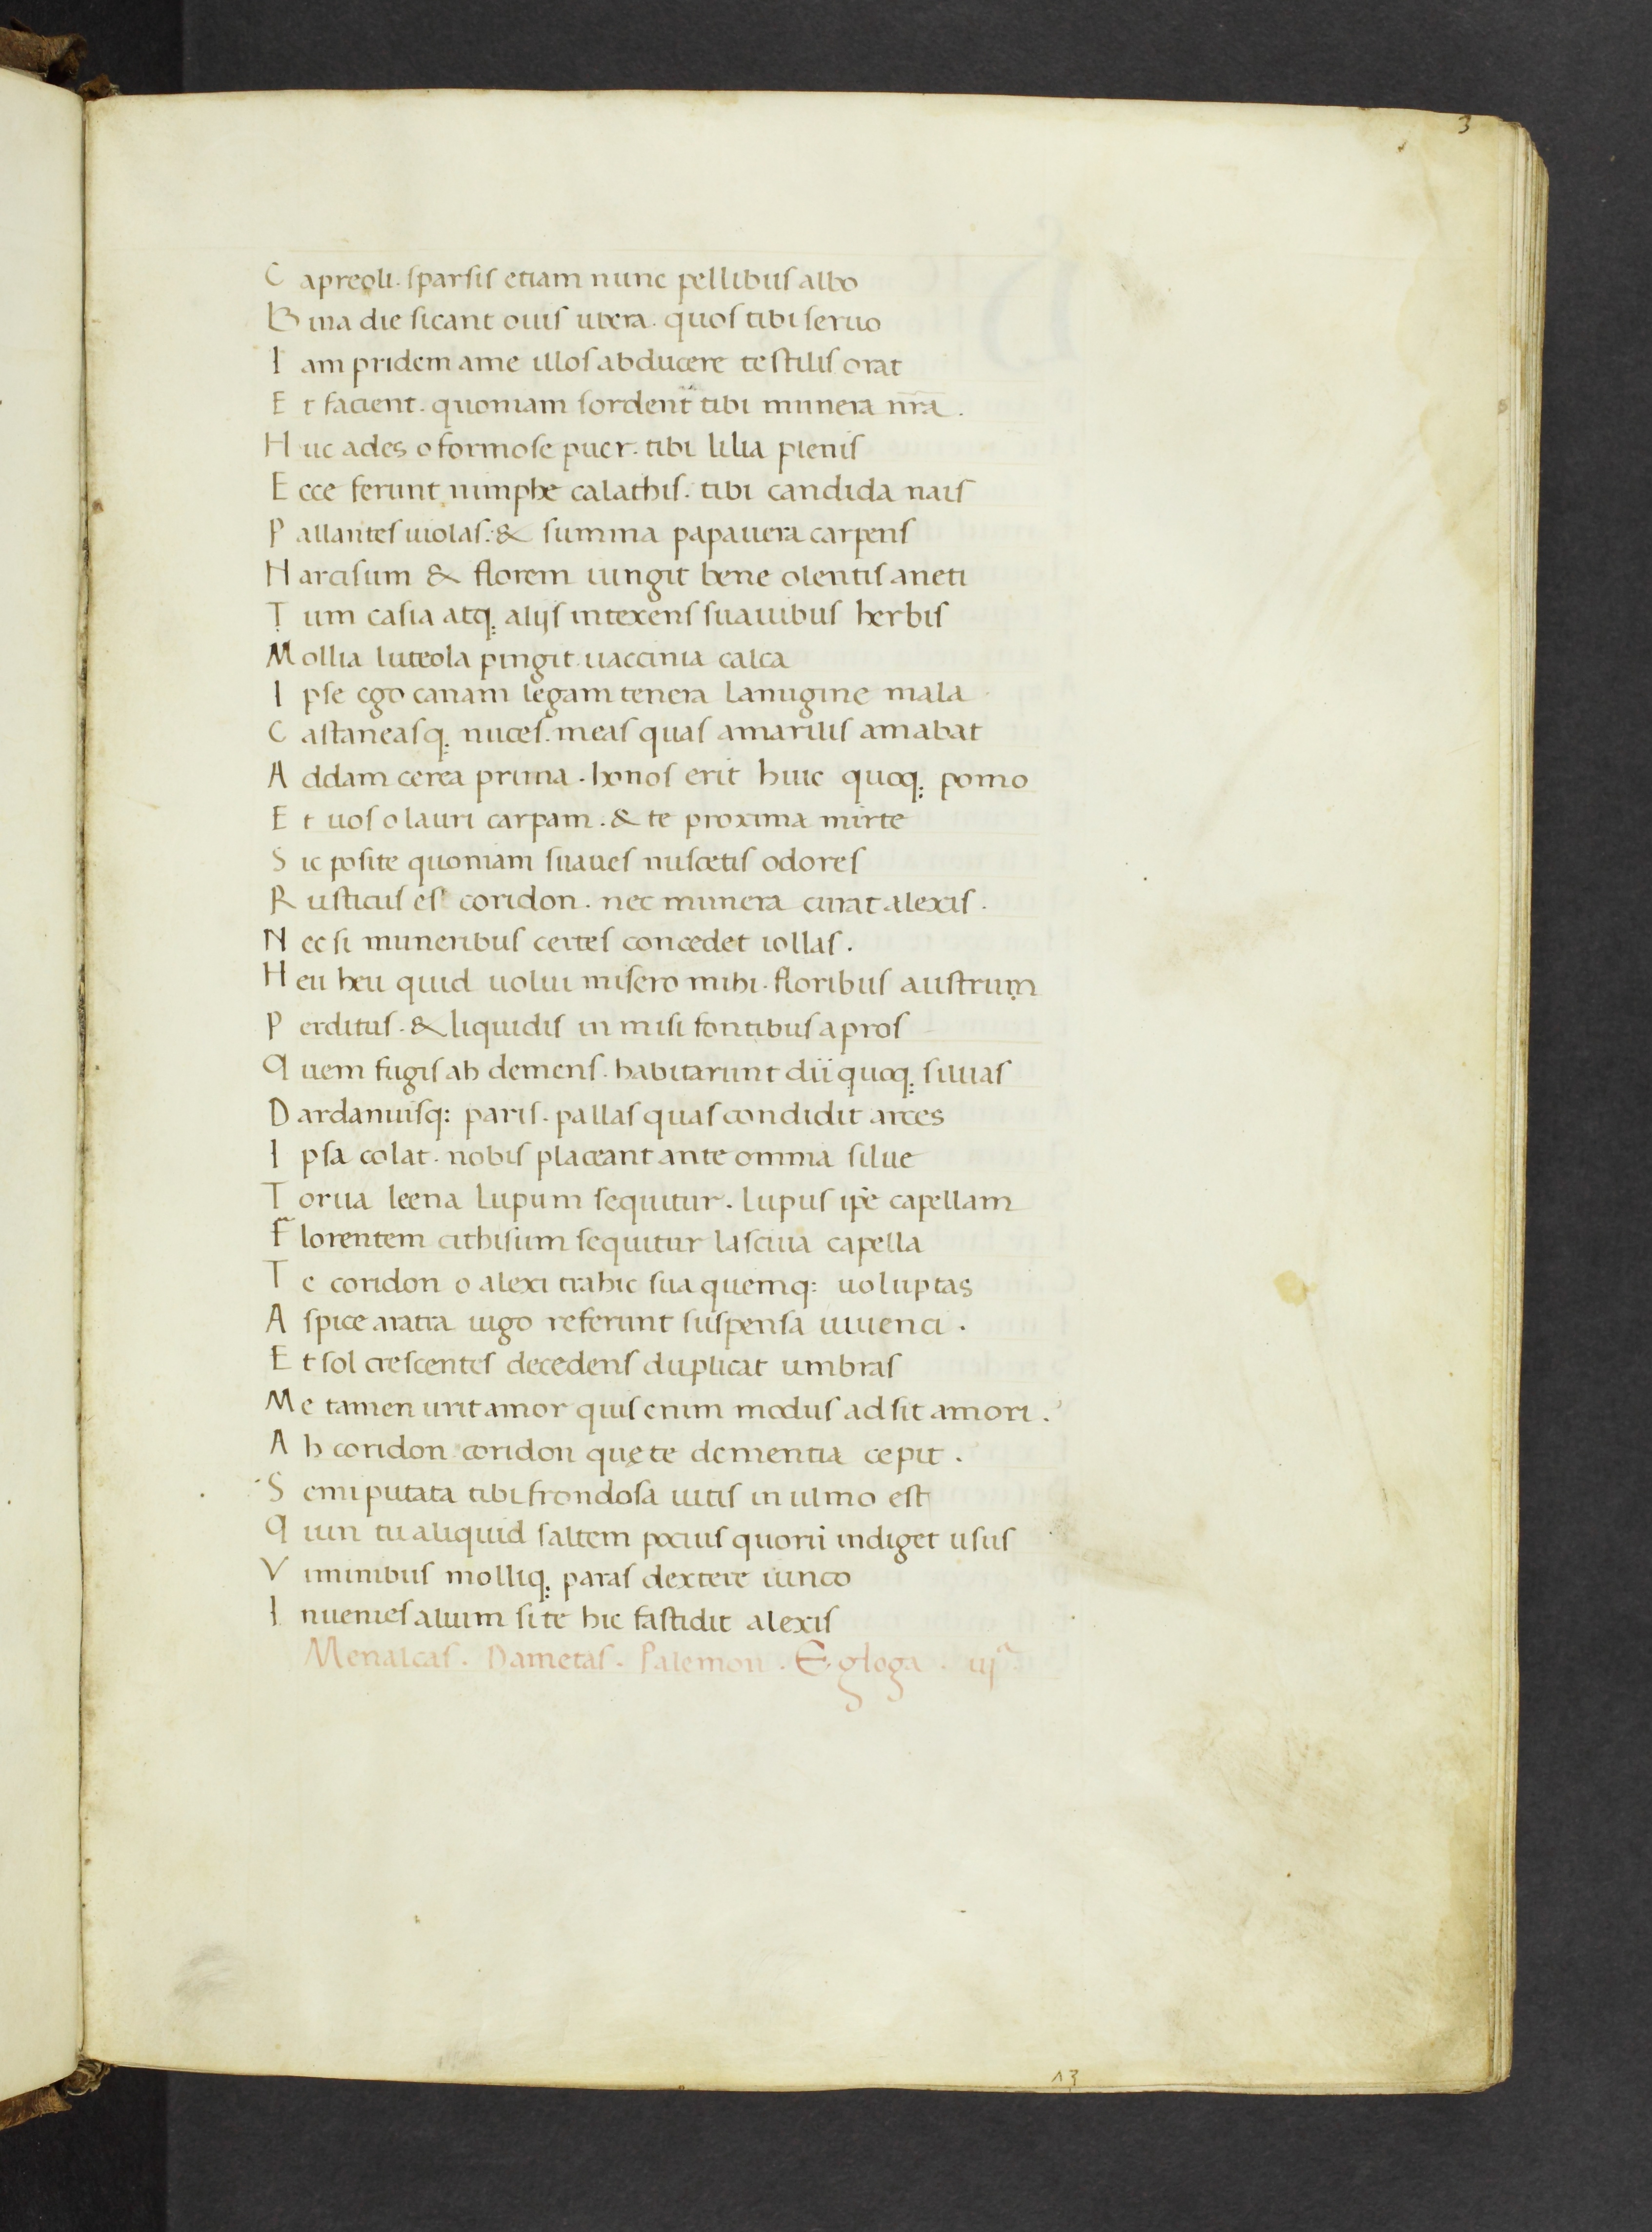 3
Capreoli. sparsis etiam nunc pellibus albo
Bina die sicant ouis ubera. quos tibi seruo
Iam pridem ame illos abducere testilis orat
Et facient. quoniam sordent tibi munera nr̄a.
Huc ades o formose puer. tibi lilia plenis
Ecce ferunt nimphe calathis. tibi candida nais
Pallantes uiolas. & summa papauera carpens
Narcisum & florem iungit bene olentis aneti
Tum casia atq; alijs intexens suauibus herbis
Mollia luteola pingit uaccinia calca
Ipse ego canam legam tenera lanugine mala
Castaneasq; nuces. meas quas amarilis amabat
Addam cerea pruna. honos erit huic quoq; pomo
Et uos o lauri carpam. & te proxima mirte
Sic posite quoniam suaues miscetis odores
Rusticus es coridon. nec munera curat alexis.
Nec si muneribus certes concedet iollas.
Heu heu quid uolui misero mihi. floribus austrum
Perditus. & liquidis in misi fontibus apros
Quem fugis ah demens. habitarunt dii quoq; siluas
Dardaniusq; paris. pallas quas condidit arces
Ipsa colat. nobis placeant ante omnia silue
Torua leena lupum sequitur. lupus ip̄e capellam
Florentem cithisum sequitur lasciua capella
Te coridon o alexi trahit sua quemq; uoluptas
Aspice aratra iugo referunt suspensa iuuenci.
Et sol crescentes decedens duplicat umbras
Me tamen urit amor quis enim modus ad sit amori.
Ah coridon coridon quę te dementia cepit.
Semiputata tibi frondosa uitis in ulmo est
Quin tu aliquid saltem pocius quorū indiget usus
Viminibus molliq; paras dextere iunco
Inuenies alium si te hic fastidit alexis
Menalcas. Dametas. Palemon. Egloga. iij
13